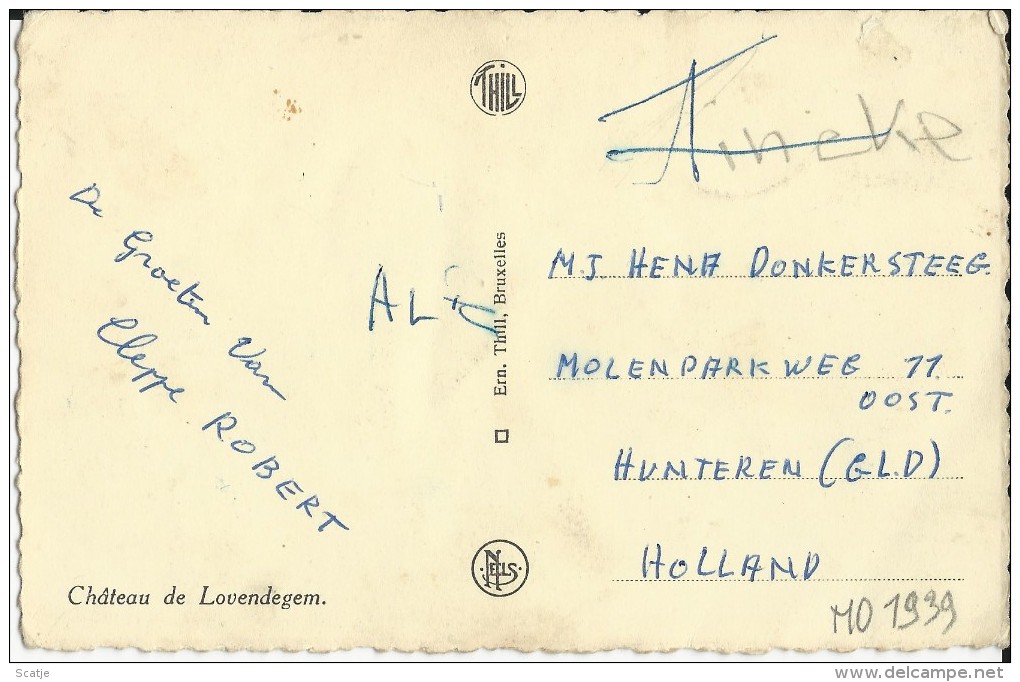 De Groeten Van
Cleppe ROBERT
Château de Lovendegem.
AL
THILL
Ern. Thill, Bruxelles
NELS
Tineke
MJ HENA DONKERSTEEG.
MOLENPARKWEG 11
OOST.
HUNTEREN (GLD)
HOLLAND
MO 1939
Scatje
http://www.delcampe.net